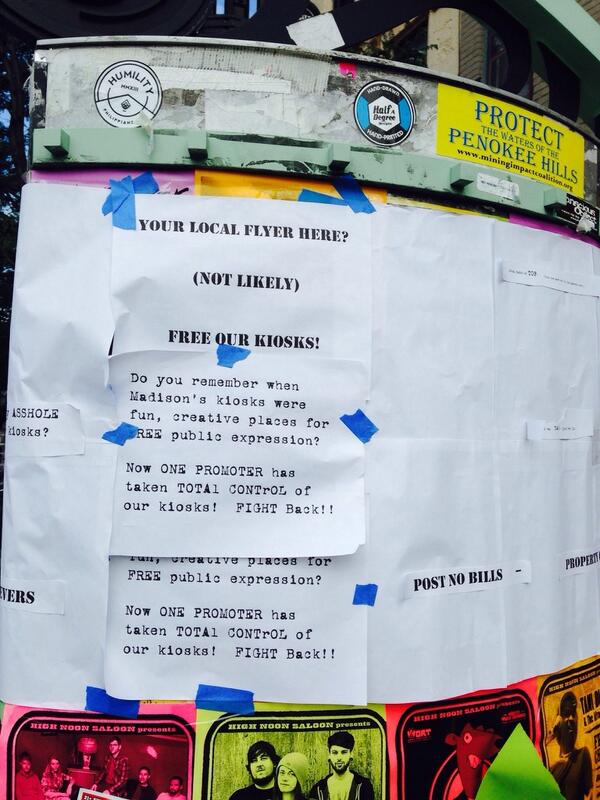 HUMILITY
MMXIII
PHILIPPIANS
HAND-DRAWN
Half A
Degree
HAND-PRINTED
PROTECT
THE WATERS OF THE
PENOKEE HILLS
www.miningimpactcoalition.org
YOUR LOCAL FLYER HERE?
(NOT LIKELY)
FREE OUR KIOSKS!
Do you remember when
Madison's kiosks were
fun, creative places for
FREE public expression?
Now ONE PROMOTER has
taken TOTAl CONTrOL of
our kiosks! FIGHT Back!!
ASSHOLE
kiosks?
fun, creative places for
FREE public expression?
Now ONE PROMOTER has
taken TOTAl CONTrOL of
our kiosks! FIGHT Back!!
VERS
POST NO BILLS -
PROPERTY
HIGH NOON SALOON presents
HIGH NOON SALOON presents
HIGH NOON SALOON presents
WORT
HIGH NOON SALOON